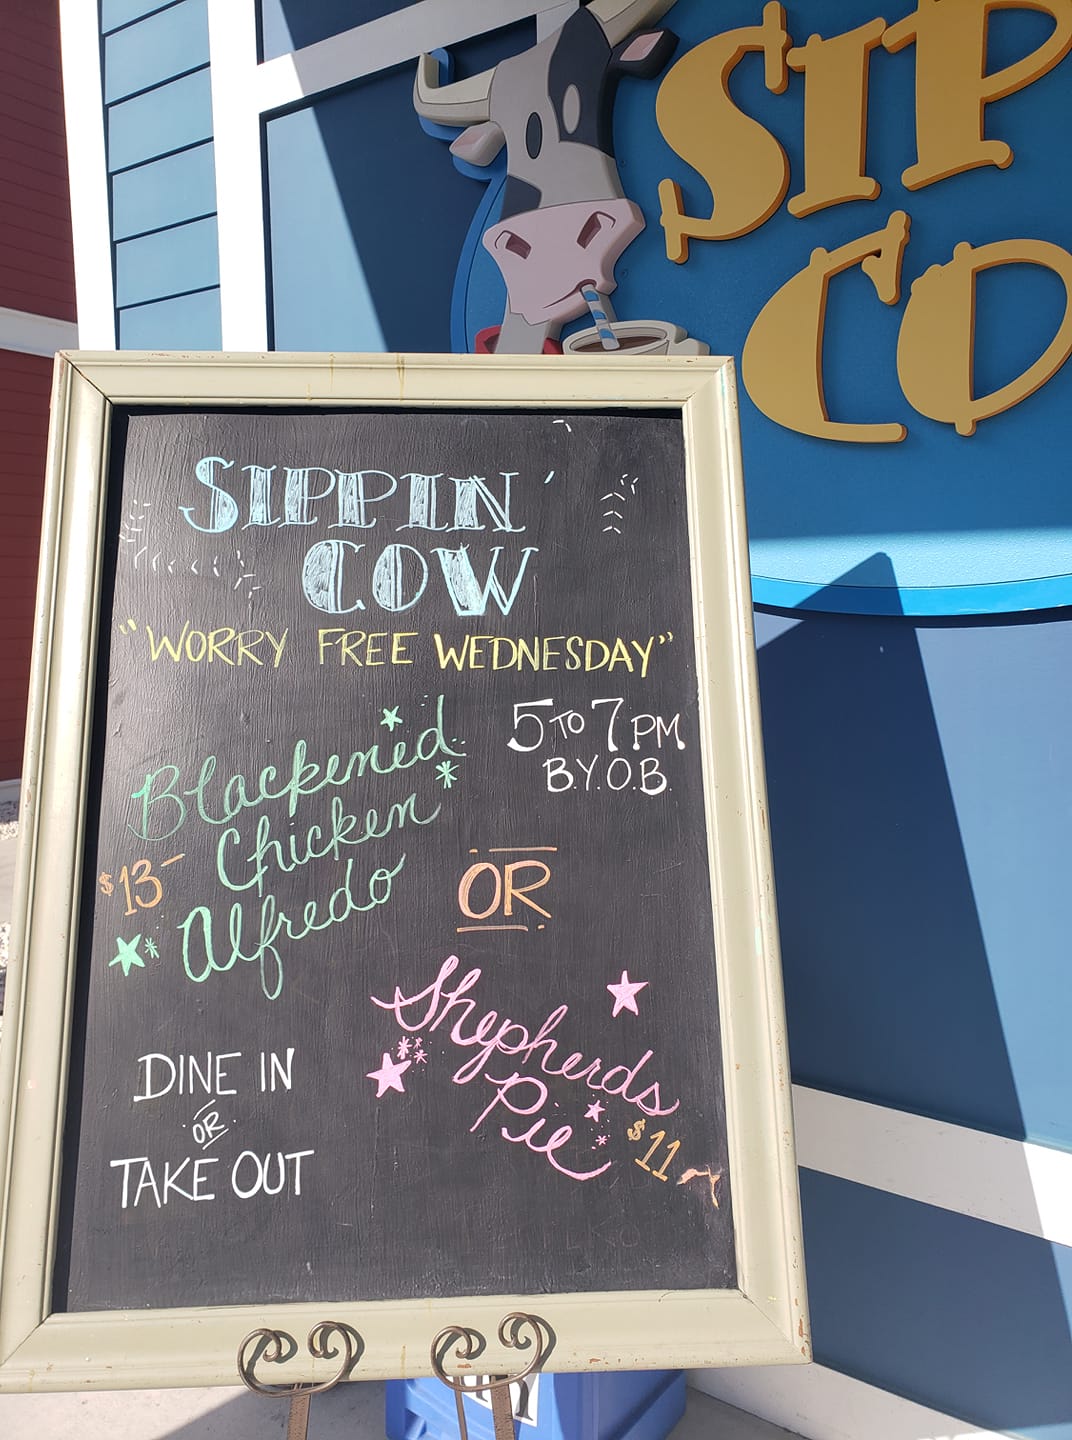 SIP
CO
SIPPIN'
COW
"WORRY FREE WEDNESDAY"
5 TO 7 PM
B.Y.O.B.
Blackened
Chicken
Alfredo
$13-
OR
Shepherds
Pie
$11
DINE IN
OR
TAKE OUT